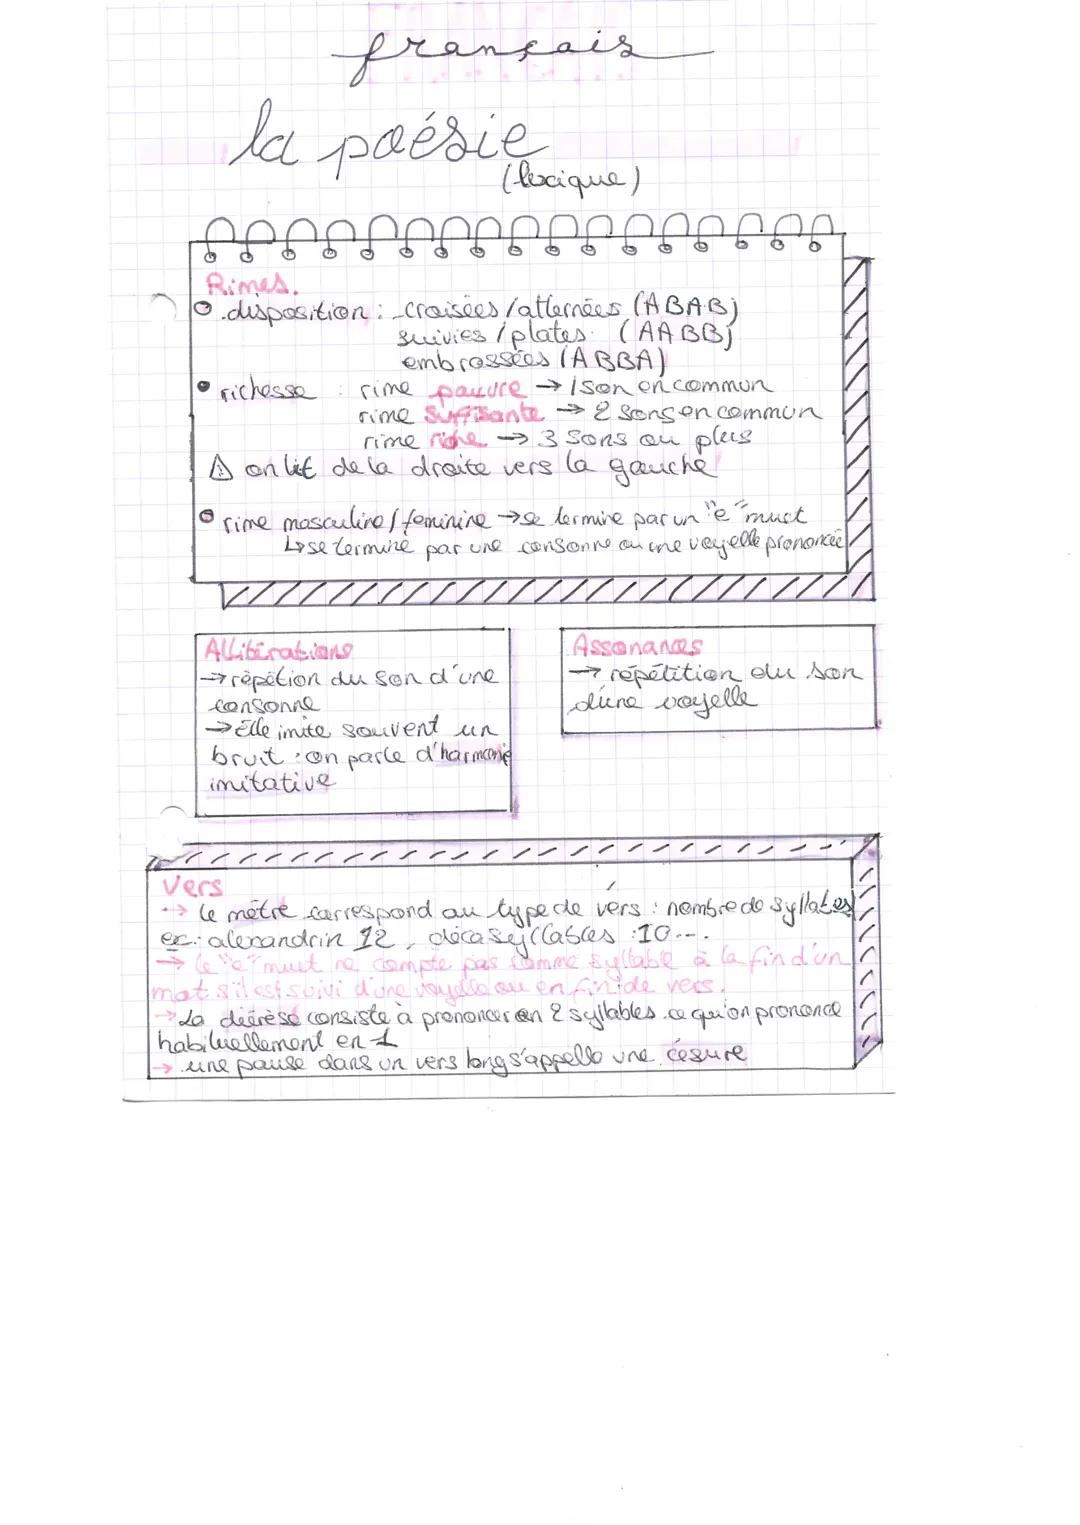 français
la poésie
(lexique)
Rimes.
.disposition : croisées/alternées (ABAB)
suivies/plates. (AABB)
embrassées (ABBA)
richesse : rime pauvre → 1 son en commun
rime suffisante → 2 sons en commun
rime riche → 3 sons ou plus
⚠ on lit de la droite vers la gauche
rime masculine/feminine → se termine par un "e" muet
↳ se termine par une consonne ou une voyelle prononcée
Allitérations
→ répétion du son d'une
consonne
→ Elle imite souvent un
bruit : on parle d'harmonie
imitative
Assonances
→ répétition du son
d'une voyelle
Vers
→ le mètre correspond au type de vers : nombre de syllabes
ex: alexandrin 12, décasyllabes : 10...
→ le "e" muet ne compte pas comme syllabe à la fin d'un
mot s'il est suivi d'une voyelle ou en fin de vers.
→ La diérèse consiste à prononcer en 2 syllabes ce qu'on prononce
habituellement en 1
→ une pause dans un vers long s'appelle une césure